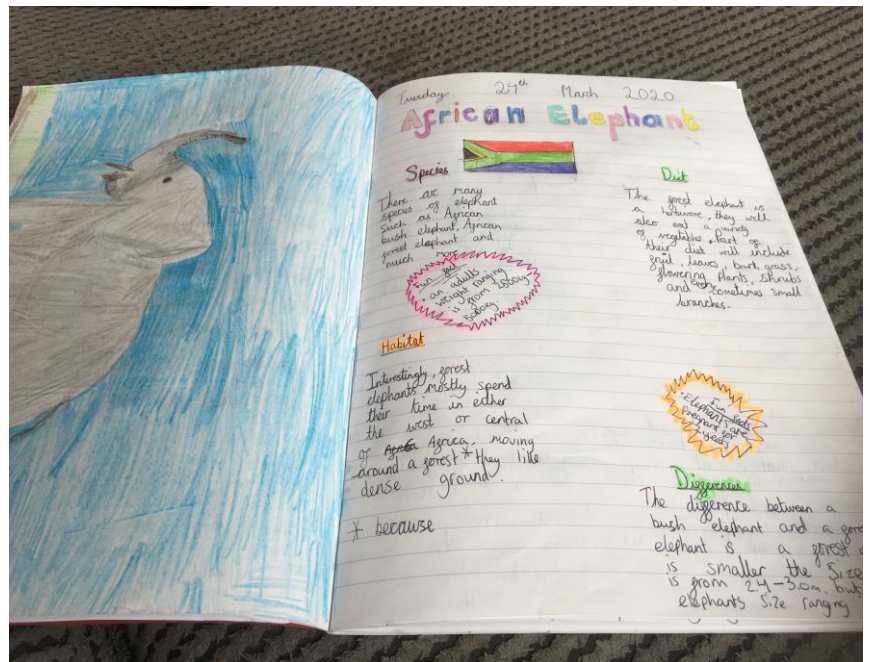 Tuesday 24th March 2020
African Elephant
Species
There are many
species of elephant
such as African
bush elephant, African
forest elephant and
much more
Fun fact
• an adults
weight ranging
is from
5000kg
Habitat
Interestingly, forest
elephants mostly spend
their time in either
the west or central
of Africa, moving
around a forest * they like
dense ground.
* because
Diet
The forest elephant is
a , they will
also eat a variety
of vegetables, Part of
their diet will include
fruit, leaves, bark, grass,
flowering plants, shrubs
and even sometimes small
branches.
Fun facts
• Elephants are
Pregnant for
2 years
Differences
The difference between a
bush elephant and a
elephant is a forest
is smaller the size
is from 2.4-3.0m, but
elephants size ranging